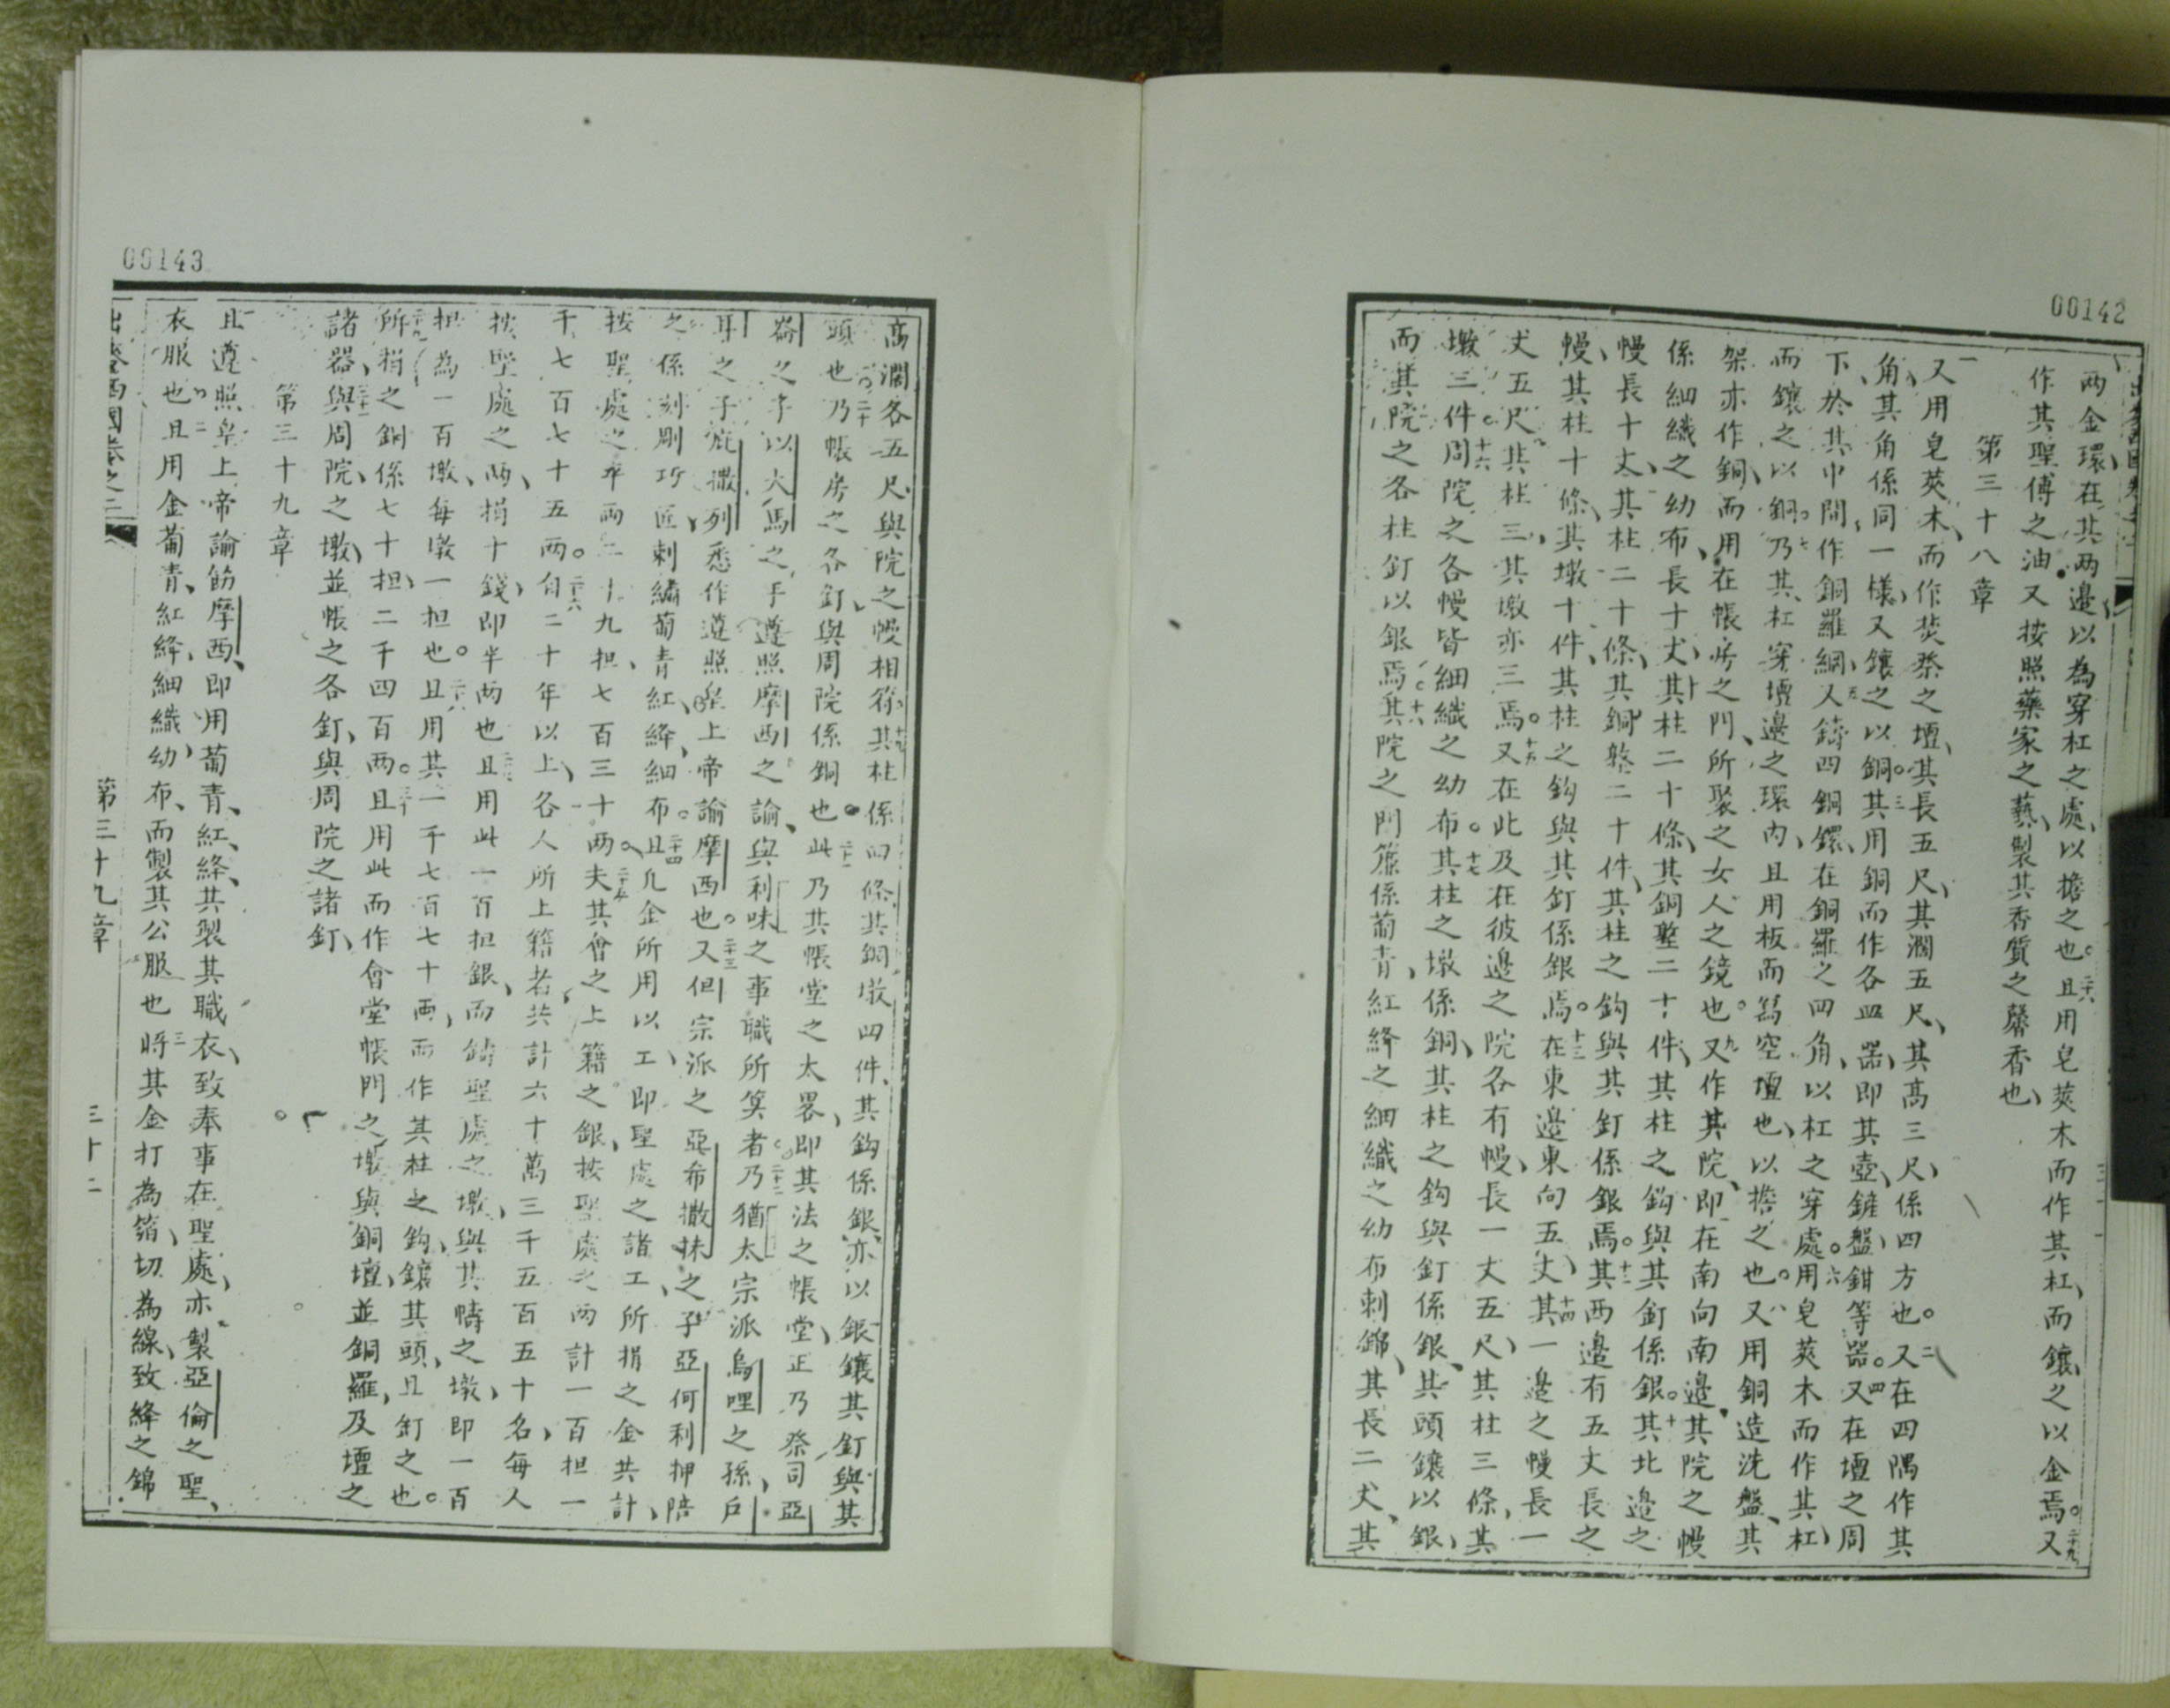 00142
两金環在其两邊以為穿杠之處、以擔之也。二十八且用皂莢木而作其杠、而鑲之以金焉。二十九又
作其聖傅之油、又按照藥家之藝、製其香質之馨香也、
第三十八章
一又用皂莢木、而作焚祭之壇、其長五尺、其濶五尺、其高三尺、係四方也。二又在四隅作其
角、其角係同一樣、又鑲之以銅。三其用銅而作各皿器、即其壺、鏟、盤、鉗等器。四又在壇之周
下於其中間、作銅羅網、五又鑄四銅鐶、在銅羅之四角、以杠之穿處。六用皂莢木而作其杠、
而鑲之以銅。七乃其杠穿壇邊之環內、且用板而為空壇也、以擔之也。八又用銅造洗盤、其
架亦作銅、而用在帳房之門、所聚之女人之鏡也。九又作其院、即在南向南邊、其院之幔
係細織之幼布、長十丈、十其柱二十條、其銅墪二十件、其柱之鈎與其釘係銀。十一其北邊之
幔長十丈、其柱二十條、其銅墪二十件、其柱之鈎與其釘係銀焉。十二其西邊有五丈長之
幔、其柱十條、其墩十件、其柱之鈎與其釘係銀焉。十三在東邊東向五丈、十四其一邊之幔長一
丈五尺、其柱三、其墩亦三焉。十五又在此及在彼邊之院各有幔、長一丈五尺、其柱三條、其
墩三件。十六周院之各幔皆細織之幼布。十七其柱之墩係銅、其柱之鈎與釘係銀、其頭鑲以銀、
而其院之各柱釘以銀焉。十八其院之門簾係葡青、紅絳之細織之幼布刺錦、其長二丈、其
00143
高濶各五尺、與院之幔相符。十九其柱係四條、其銅墩四件、其鈎係銀、亦以銀鑲其釘與其
頭也。二十乃帳房之各釘、與周院係銅也。二十一此乃其帳堂之太畧、即其法之帳堂、正乃祭司亞
倫之子以大馬之手、遵照摩西之諭、與利味之事職所筭者。二十二乃猶太宗派烏哩之孫、戶
耳之子庇撒列悉作遵照皇上帝諭摩西也。二十三又但宗派之亞希撒抹之子亞何利押陪
之、係刻剛巧匠、刺繡葡青、紅、絳、細布。二十四且凡金所用以工、即聖處之諸工所捐之金、共計、
按聖處之平两二十九担、七百三十两。二十五夫其會之上籍之銀、按聖處之两計一百担一
千七百七十五两。二十六自二十年以上、各人所上籍者、共計六十萬三千五百五十名、每人
按聖處之两、捐十錢、即半两也。二十七且用此一百担銀、而鑄聖處之墩、與其幬之墩、即一百
担為一百墩、每墩一担也。二十八且用其一千七百七十两、而作其柱之鈎、鑲其頭、且釘之也。
二十九所捐之銅係七十担、二千四百两。三十且用此而作會堂帳門之墩、與銅壇、並銅羅、及壇之
諸器、三十一與周院之墩、並帳之各釘、與周院之諸釘、
第三十九章
一且遵照皇上帝諭飭摩西、即用葡青、紅、絳、其製其職衣、致奉事在聖處、亦製亞倫之聖
衣服也。二且用金葡青、紅絳、細織幼布、而製其公服也。三將其金打為箔、切為線、致絳之錦
出麥西國卷之二
第三十九章
三十二